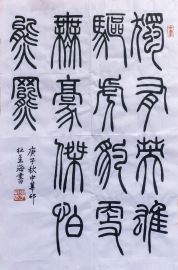 獨有英雄
驅虎豹更
無豪傑怕
熊羆
庚子秋中
海書